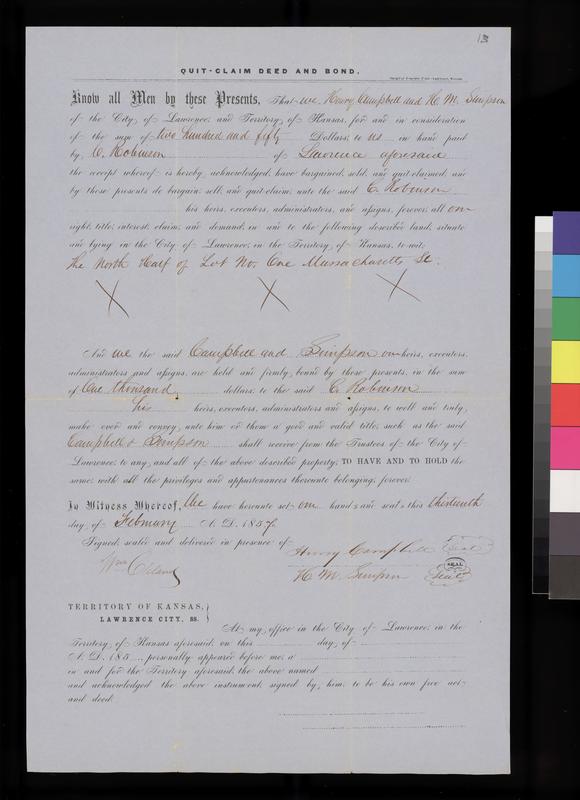 13
QUIT-CLAIM DEED AND BOND.
Know all Men by these Presents, That we, Henry Campbell and H. M. Simpson
of the City of Lawrence, and Territory of Kansas, for and in consideration
of the sum of two hundred and fifty Dollars, to us in hand paid
by C. Robinson of Lawrence aforesaid
the receipt whereof is hereby acknowledged, have bargained, sold, and quit-claimed, and
by these presents do bargain, sell, and quit-claim, unto the said C. Robinson
his heirs, executors, administrators, and assigns, forever, all our
right, title, interest, claim, and demand, in and to the following described land, situate
and lying in the City of Lawrence, in the Territory of Kansas, to wit:
The North Half of Lot No. One Massachusetts St.
X X X
And we the said Campbell and Simpson our heirs, executors,
administrators and assigns, are held and firmly bound by these presents, in the sum
of One thousand dollars, to the said C. Robinson
his heirs, executors, administrators and assigns, to well and truly,
make over and convey, unto him or them a good and valid title, such as the said
Campbell & Simpson shall receive from the Trustees of the City of
Lawrence, to any and all of the above described property; TO HAVE AND TO HOLD the
same, with all the privileges and appurtenances thereunto belonging, forever.
In Witness Whereof, We have hereunto set our hands and seals this thirteenth
day of February A. D. 1857.
Signed, sealed and delivered in presence of
Henry Campbell Seal
H. M. Simpson SEAL Seal
TERRITORY OF KANSAS,
LAWRENCE CITY, SS.
At my office in the City of Lawrence, in the
Territory of Kansas aforesaid, on this day of
A. D. 185 , personally appeared before me, a
in and for the Territory aforesaid, the above named
and acknowledged the above instrument, signed by him, to be his own free act
and deed.